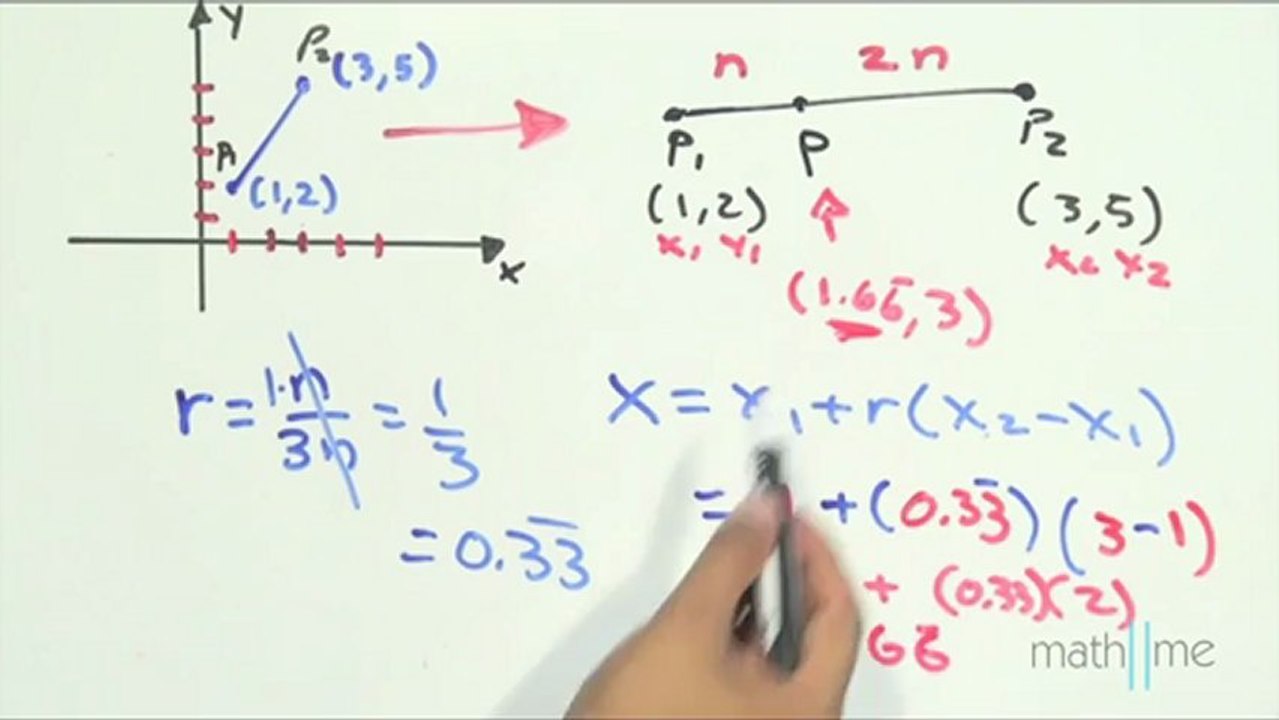 y
P₂(3,5)
P₁
(1,2)
x
n 2n
P₁ P P₂
(1,2) (3,5)
x₁ y₁ x₂ y₂
(1.66̅,3)
r = 1·n/3n = 1/3
= 0.3̅3̅
x = x₁ + r(x₂-x₁)
= + (0.33̅)(3-1)
+ (0.33)(2)
66̅
math||me